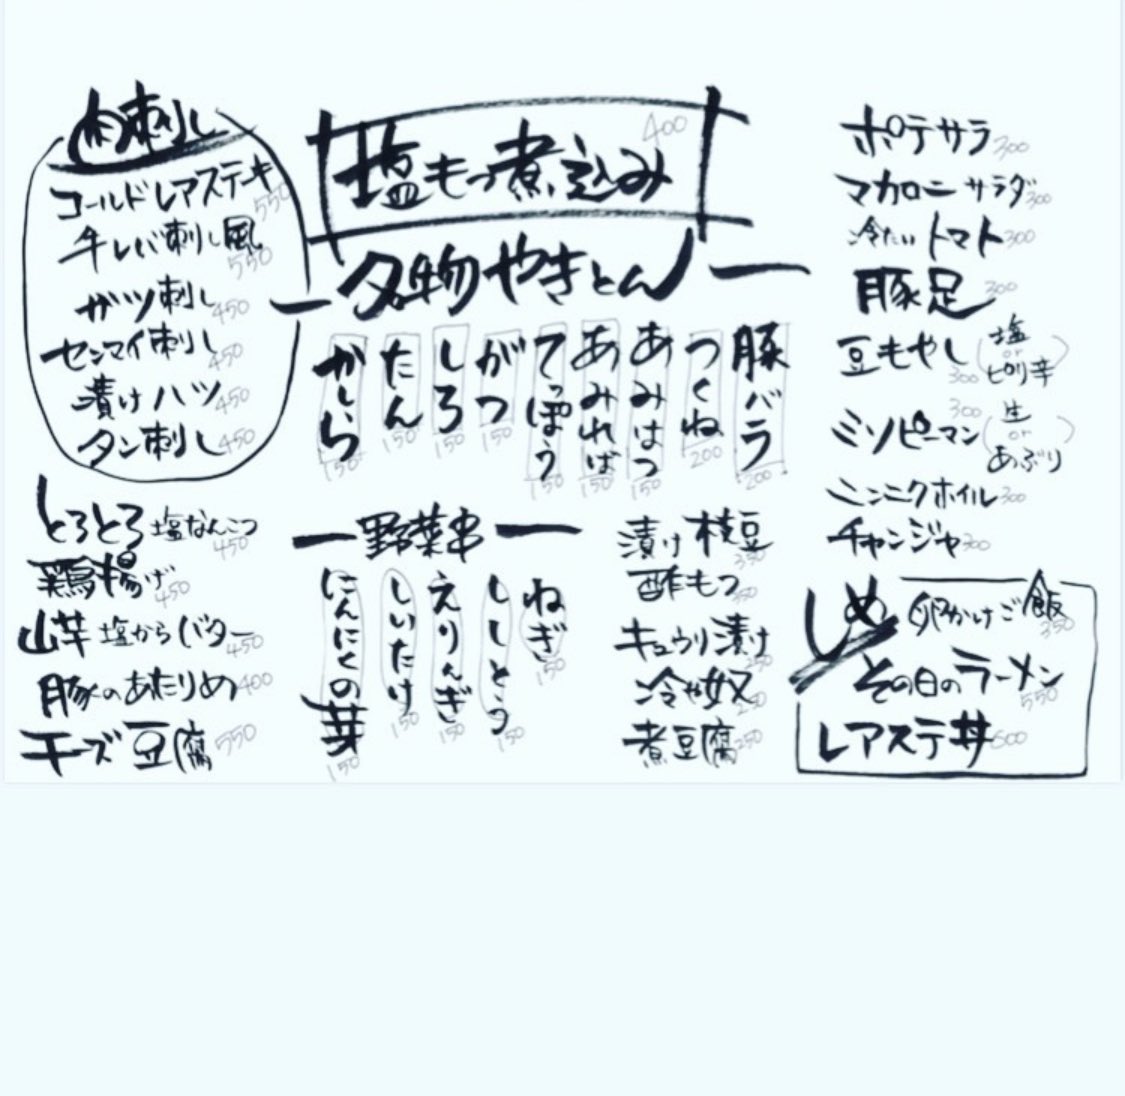 肉刺し
コールドレアステーキ 550
牛レバ刺し風 550
ガツ刺し 450
センマイ刺し 450
漬けハツ 450
タン刺し 450
とろとろ塩なんこつ 450
鶏揚げ 450
山芋塩からバター 450
豚のあたりめ 400
チーズ豆腐 550
塩もつ煮込み 400
名物やきとん
豚バラ 200
つくね 200
あみはつ 150
あみれば 150
てっぽう 150
がつ 150
しろ 150
たん 150
かしら 150
野菜串
ねぎ 150
ししとう 150
えりんぎ 150
しいたけ 150
にんにくの芽 150
漬け枝豆 350
酢もつ 350
キュウリ漬け 250
冷や奴 250
煮豆腐 250
ポテサラ 300
マカロニサラダ 300
冷たいトマト 300
豚足 300
豆もやし 300 (塩 or ピリ辛)
ミソピーマン 300 (生 or あぶり)
ニンニクホイル 300
チャンジャ 300
しめ
卵かけご飯 350
その日のラーメン 550
レアステ丼 600